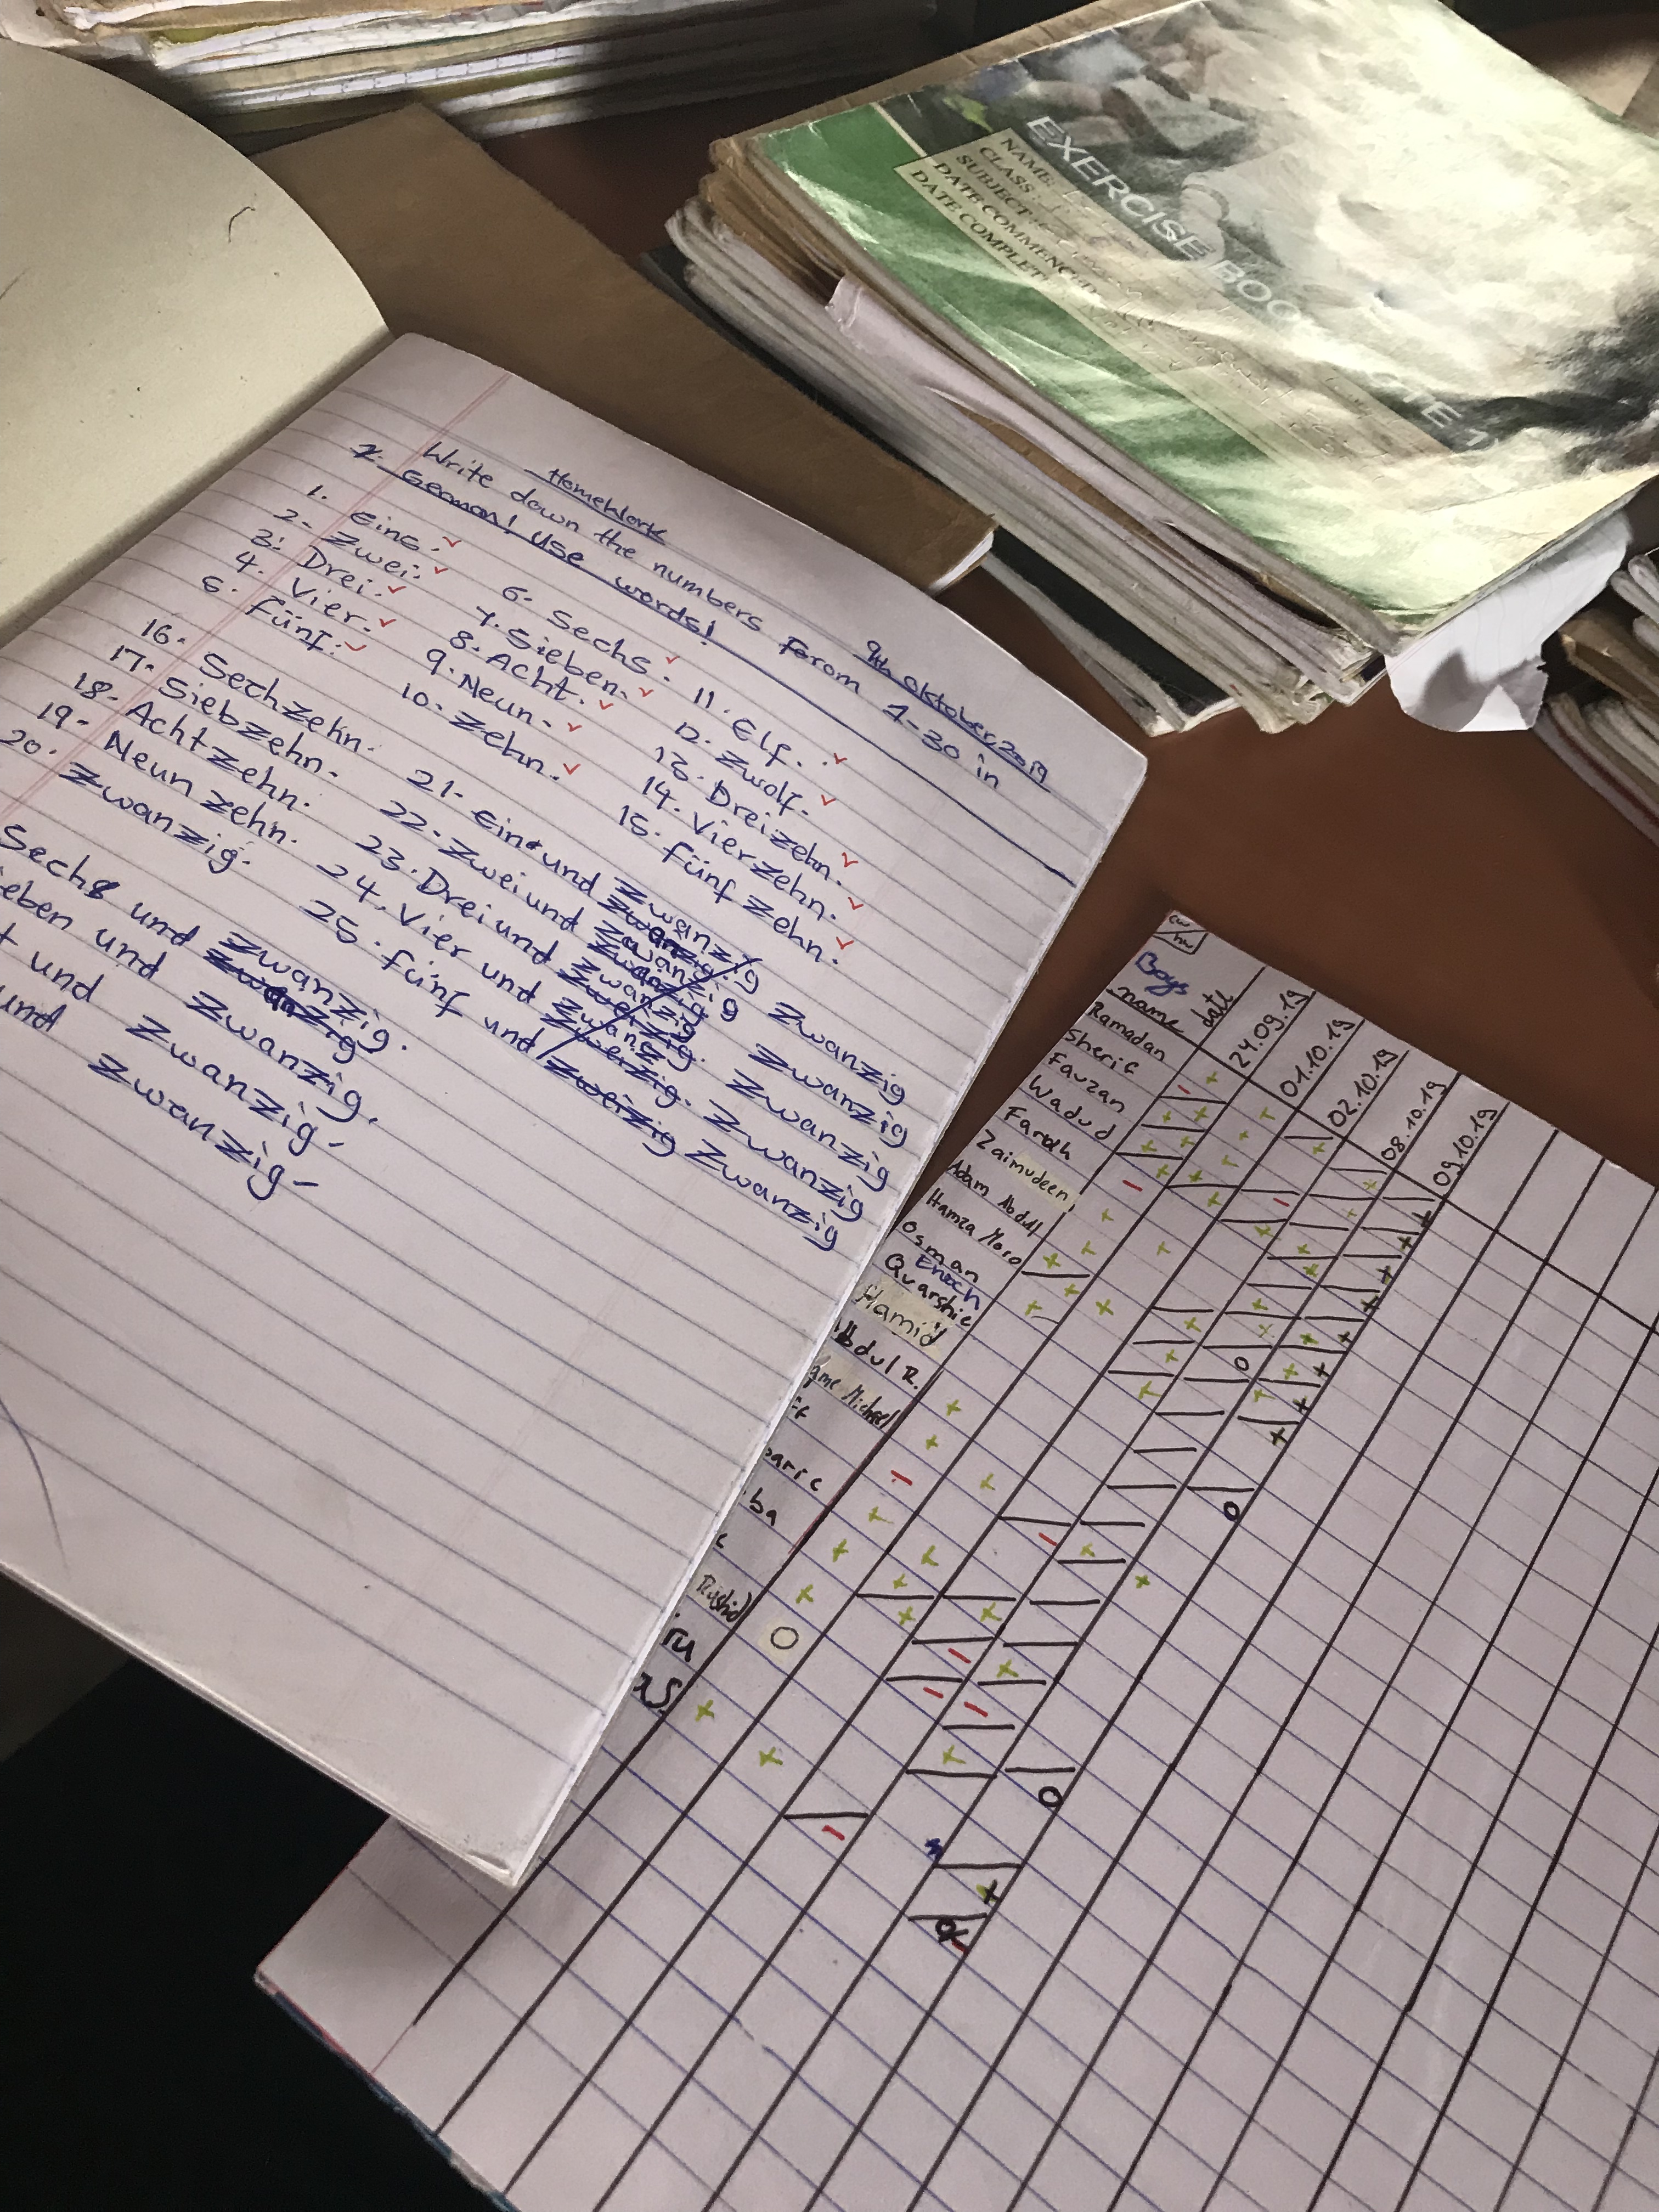 EXERCISE BOOK
NAME:
CLASS
SUBJECT
DATE COMMENCED
DATE COMPLET
9th Oktober, 2019
HomeWork
Write down the numbers from 1-30 in
German! Use words!
1. Eins.
2. Zwei.
3. Drei.
4. Vier.
5. Fünf.
6. Sechs.
7. Sieben.
8. Acht.
9. Neun.
10. Zehn.
11. Elf.
12. Zwölf.
13. Dreizehn.
14. Vierzehn.
15. Fünfzehn.
16. Sechzehn.
17. Siebzehn.
18. Achtzehn.
19. Neunzehn.
20. Zwanzig.
21. Ein und Zwanzig Zwanzig
22. Zwei und Zwanzig Zwanzig
23. Drei und Zwanzig Zwanzig
24. Vier und Zwanzig Zwanzig
25. Fünf und Zweizig Zwanzig
Sechs und Zwanzig.
ieben und Zwanzig.
t und Zwanzig-
und Zwanzig-
cw/hw
Boys
name date 24.09.19 01.10.19 02.10.19 08.10.19 09.10.19
Ramadan
Sherif
Fauzan
Wadud
Farah
Zaimudeen
Adam Abdul
Hamza Moro
Osman
Enoch
Quarshie
Hamid
Abdul R.
Michael
ff
baric
ba
Rashid
ru
as.